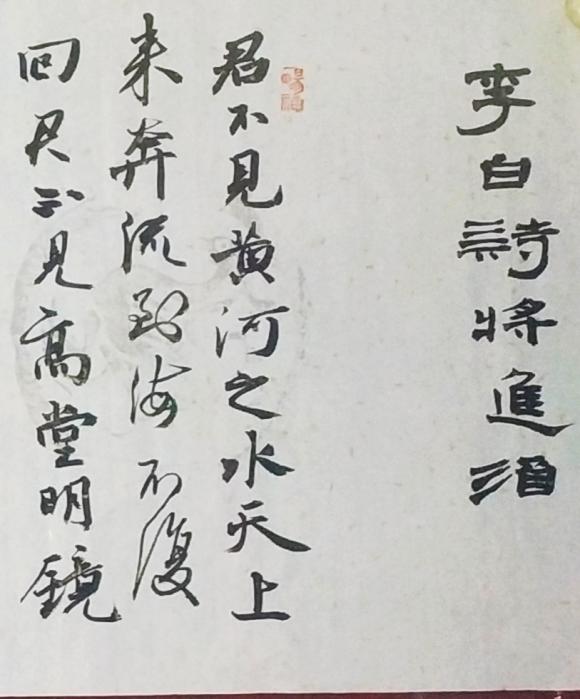 李白詩將進酒
君不見黄河之水天上
来奔流到海不復
回君不見高堂明鏡